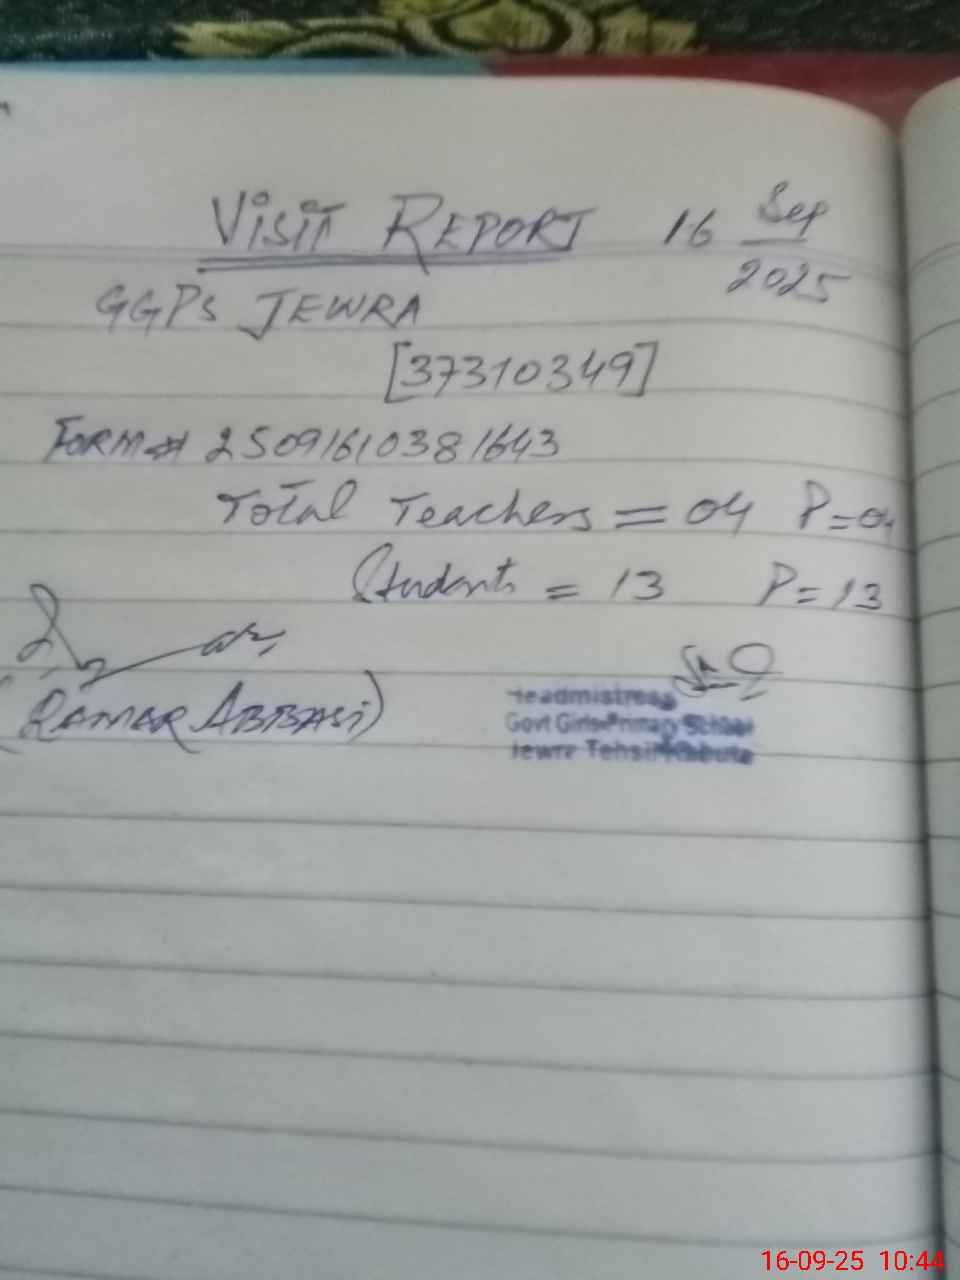 VISIT REPORT 16 Sep
2025
GGPS JEWRA
[37310349]
FORM# 25091610381643
Total Teachers = 04 P=04
Students = 13 P=13
(QAMAR ABBASI)
Headmistress
Govt Girls Primary School
Tehsil
16-09-25 10:44